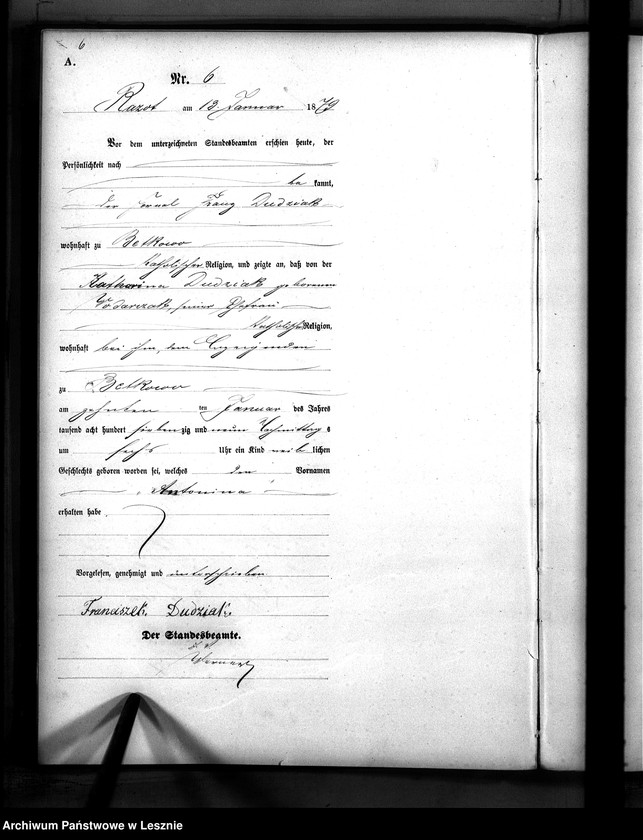 6
A.
Nr. 6
Razot am 13 Januar 1879
Vor dem unterzeichneten Standesbeamten erschien heute, der
Persönlichkeit nach
be kannt,
der Franz Dudziak
wohnhaft zu Betkowo
katholischer Religion, und zeigte an, daß von der
Katharina Dudziak geborenen
seiner Ehefrau
katholischer Religion,
wohnhaft bei ihm, dem Anzeigenden
zu Betkowo
am zehnten ten Januar des Jahres
tausend acht hundert siebenzig und neun Nachmittags
um sechs Uhr ein Kind weib lichen
Geschlechts geboren worden sei, welches den Vornamen
Antonina
erhalten habe
Vorgelesen, genehmigt und unterschrieben
Franciszek Dudziak
Der Standesbeamte.
Archiwum Państwowe w Lesznie